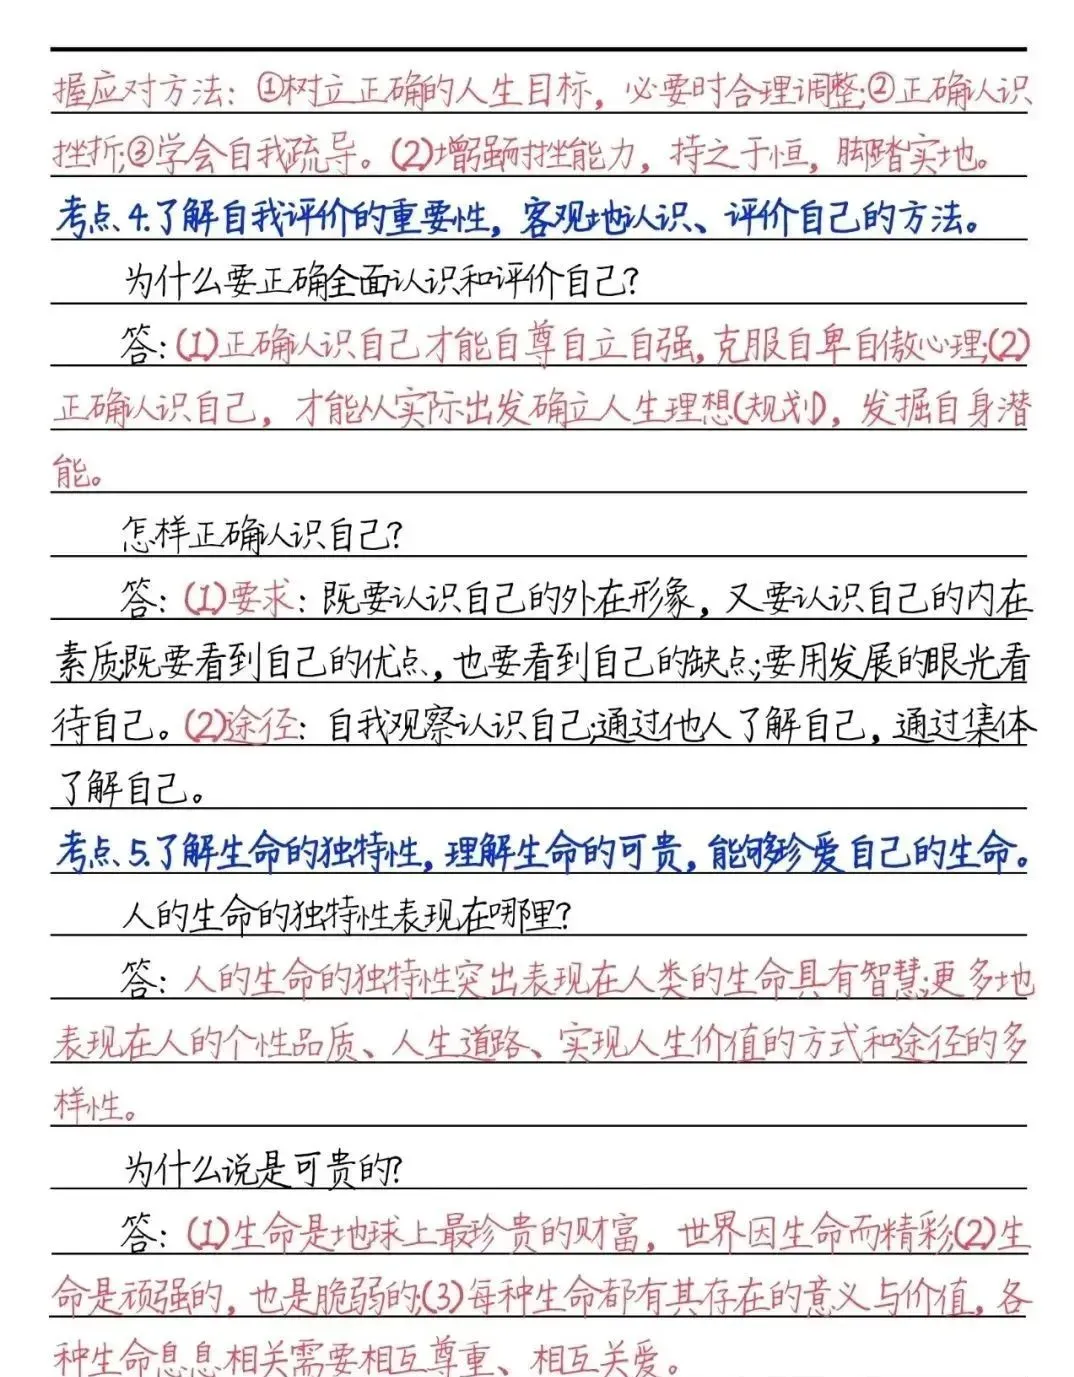 握应对方法：①树立正确的人生目标，必要时合理调整;②正确认识
挫折;③学会自我疏导。(2)增强耐挫能力，持之于恒，脚踏实地。
考点、4.了解自我评价的重要性，客观地认识、评价自己的方法。
为什么要正确全面认识和评价自己?
答：(1)正确认识自己才能自尊自立自强,克服自卑自傲心理;(2)
正确认识自己，才能从实际出发确立人生理想(规划)，发掘自身潜
能。
怎样正确认识自己?
答：(1)要求：既要认识自己的外在形象，又要认识自己的内在
素质;既要看到自己的优点，也要看到自己的缺点;要用发展的眼光看
待自己。(2)途径：自我观察认识自己;通过他人了解自己，通过集体
了解自己。
考点、5.了解生命的独特性，理解生命的可贵，能够珍爱自己的生命。
人的生命的独特性表现在哪里?
答：人的生命的独特性突出表现在人类的生命具有智慧;更多地
表现在人的个性品质、人生道路、实现人生价值的方式和途径的多
样性。
为什么说是可贵的?
答：(1)生命是地球上最珍贵的财富，世界因生命而精彩;(2)生
命是顽强的，也是脆弱的;(3)每种生命都有其存在的意义与价值，各
种生命息息相关需要相互尊重、相互关爱。